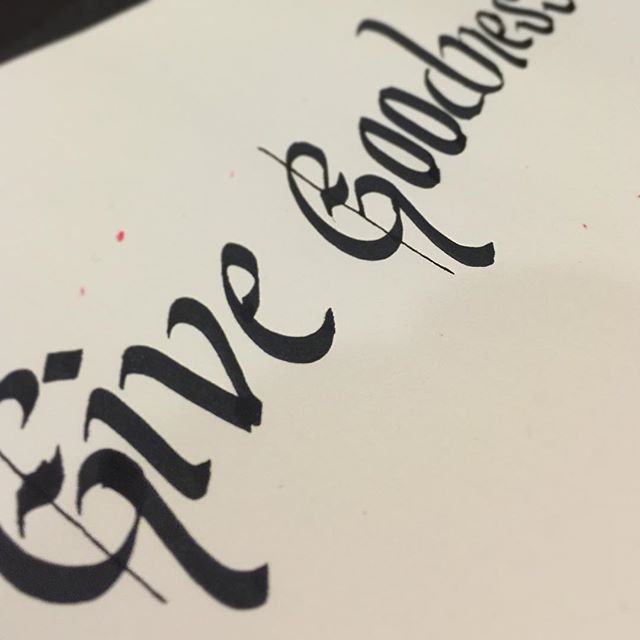 Give Goodness